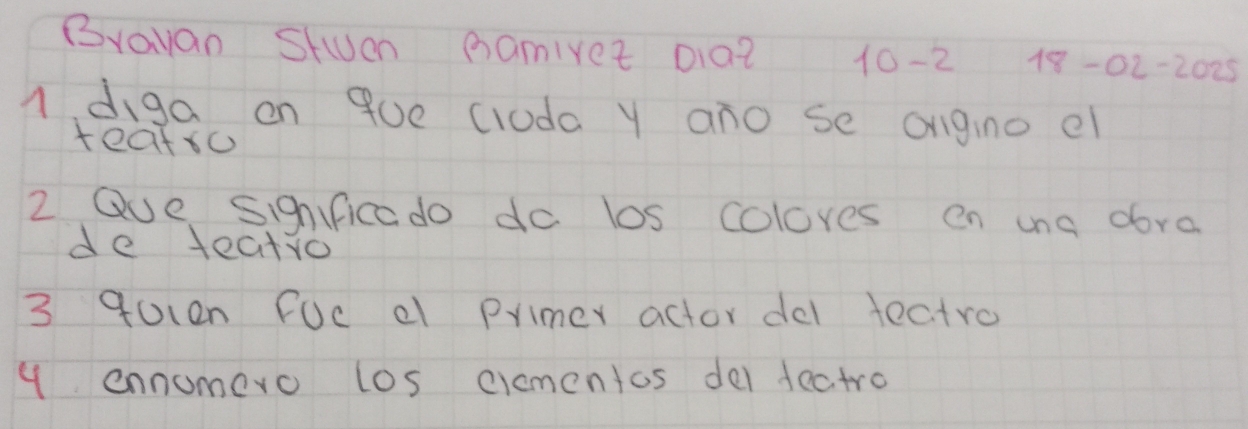 Brayan Stiven Ramirez Diaz 10-2 18-02-2025
1 diga en que ciuda y año se origino el
teatro
2 Que significado da los colores en una obra
de teatro
3 quien fue el primer actor del teatro
4 ennumero los elementos del teatro